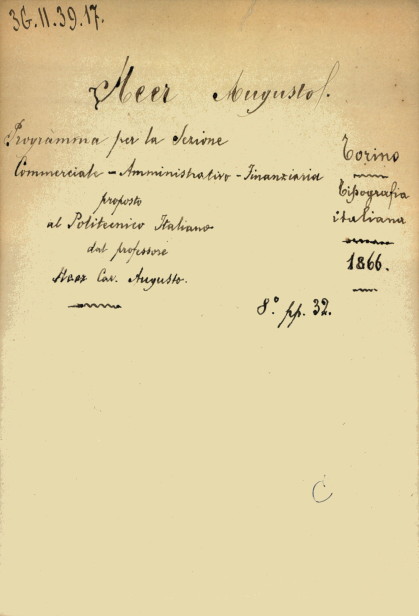 36.11.39.17.
Meer Augusto.
Programma per la Sezione
Commerciale - Amministrativo - Finanziaria
proposto
al Politecnico Italiano
dal professore
Cav. Augusto.
Torino
Tipografia
italiana
1866.
8.° pp. 32.
C